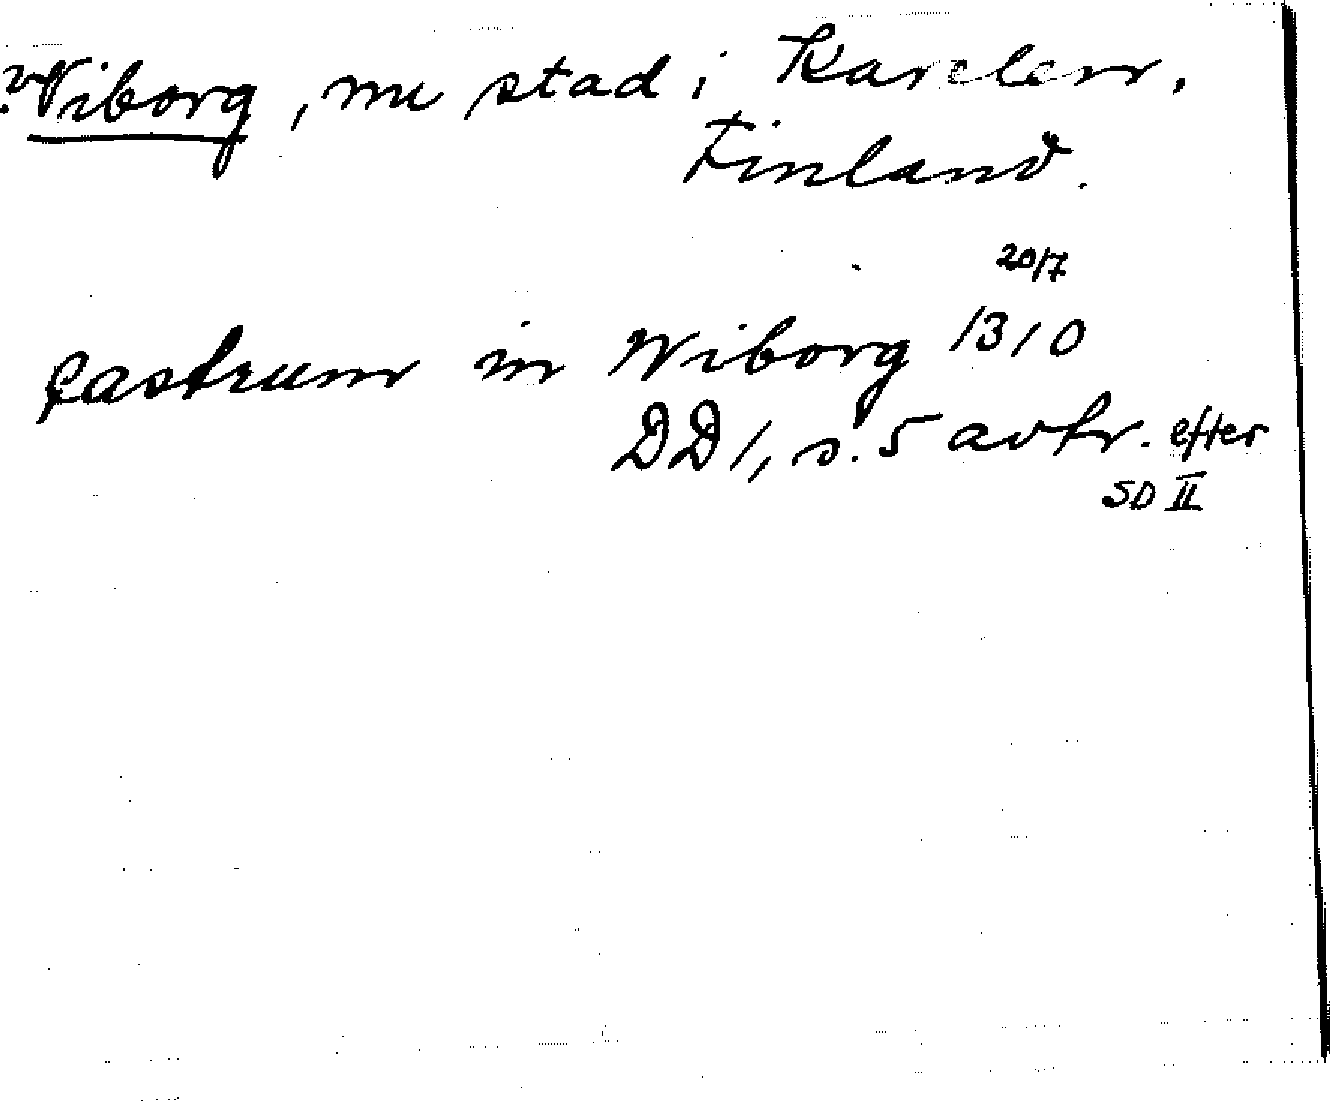 Viborg, nu stad i Karelen,
Finland.
20/7
castrum in Wiborg 1310
DD 1, s. 5 avtr. efter
SD II